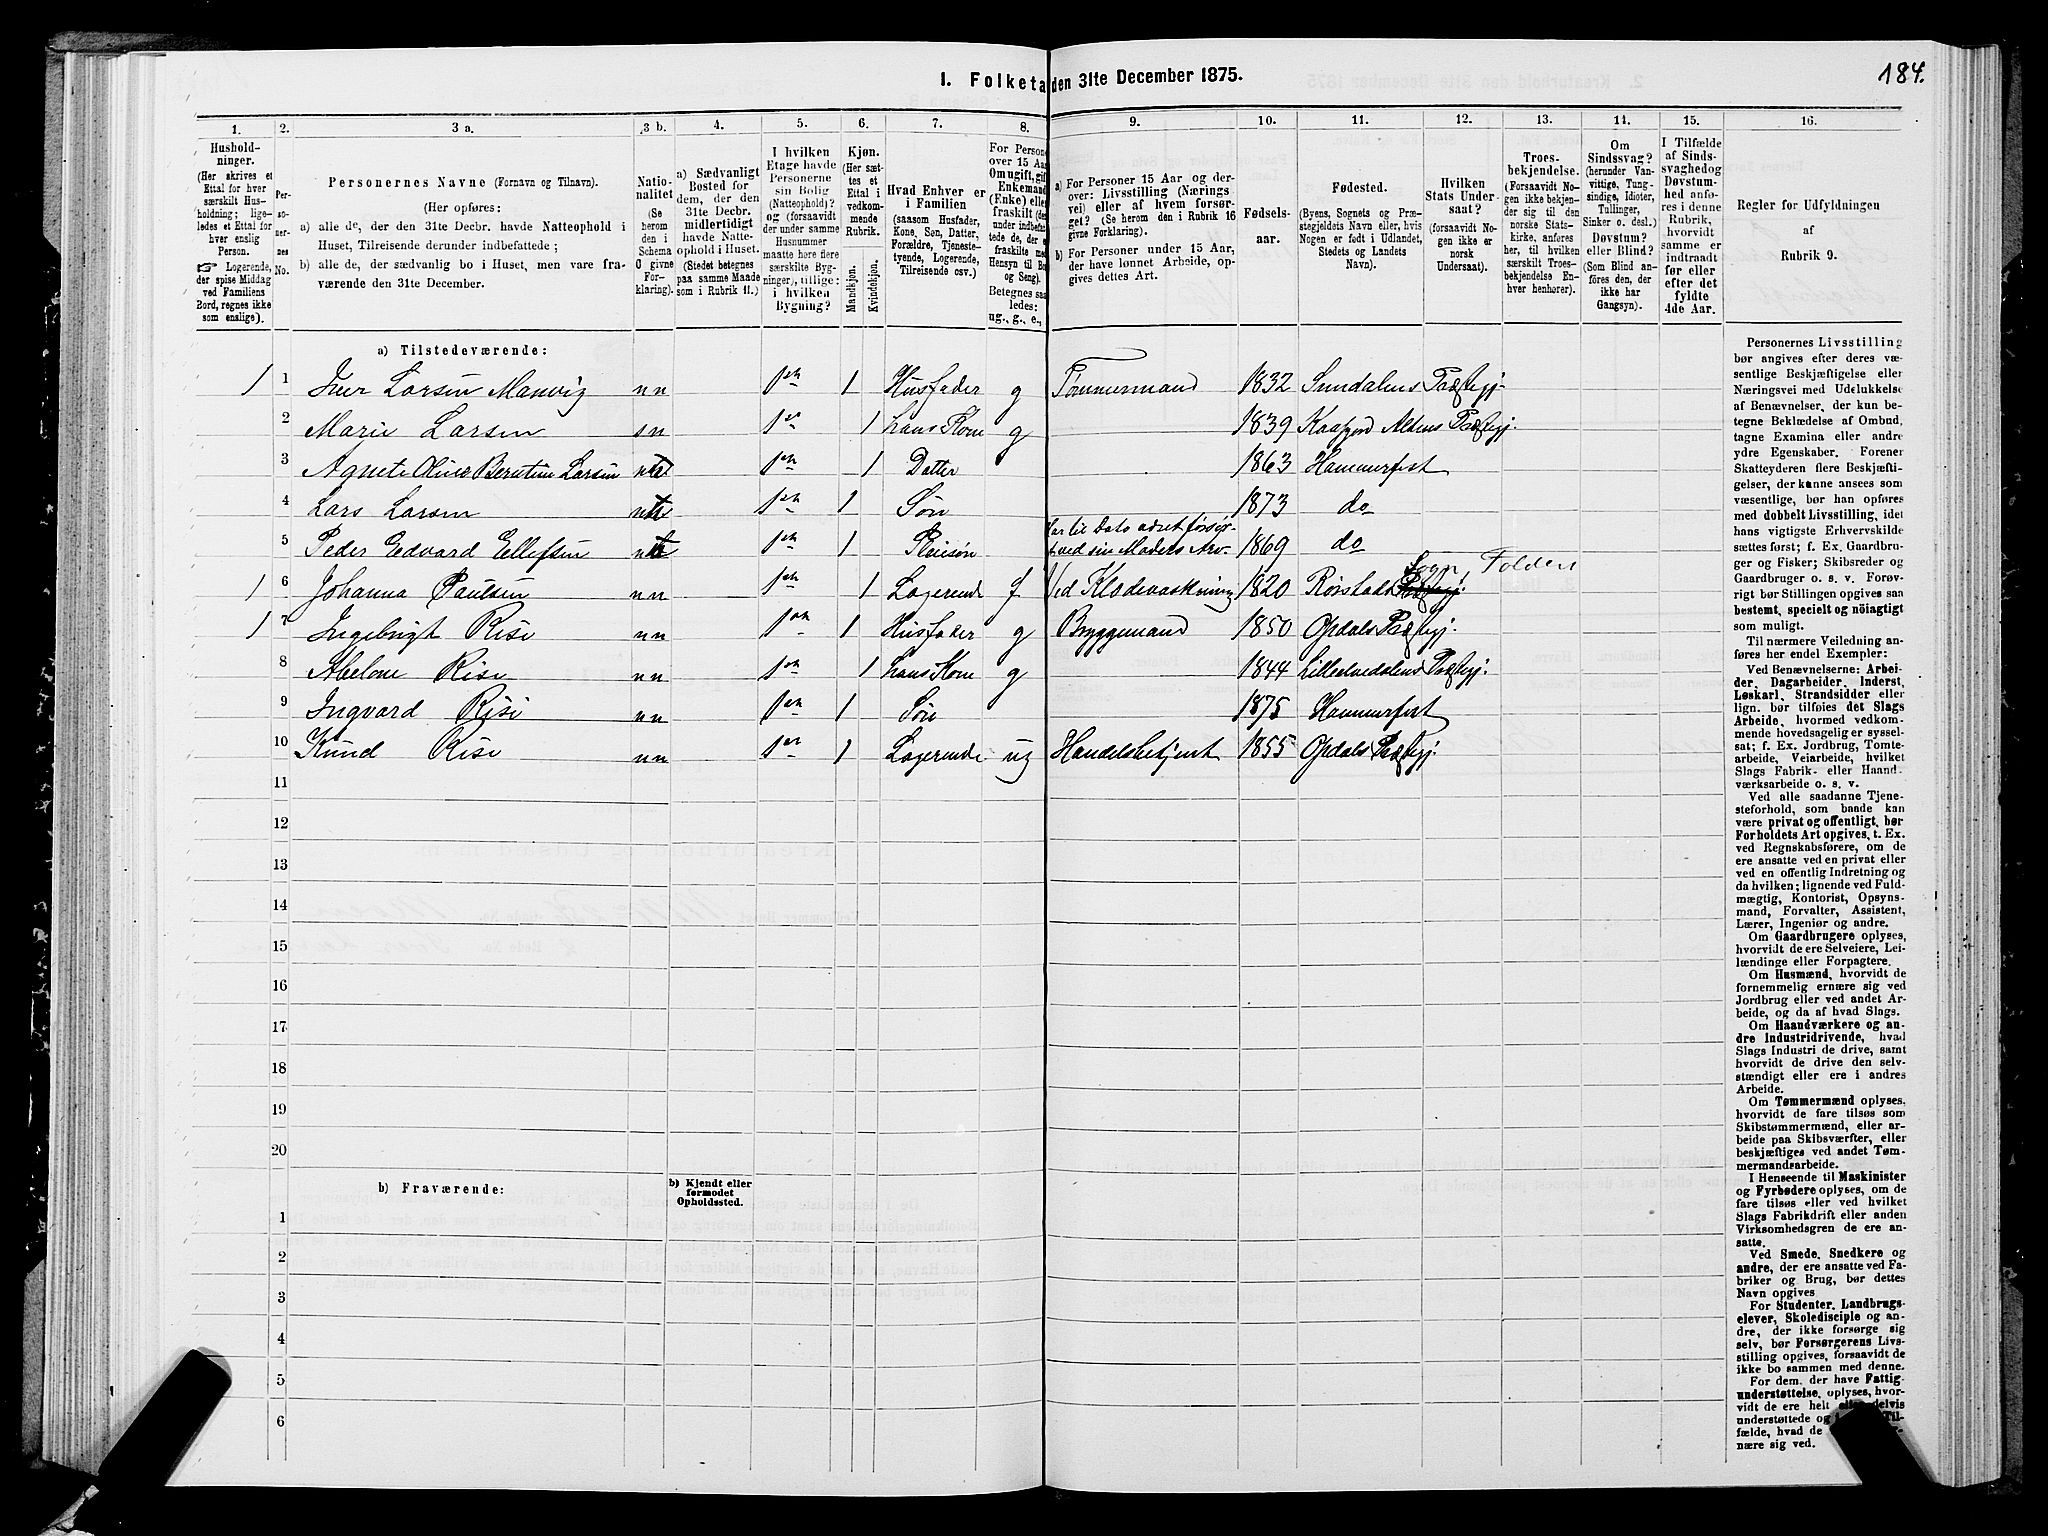 184.
1. Folketa den 31te December 1875.
1. 2. 3 a. 3 b. 4. 5. 6. 7. 8. 9. 10. 11. 12. 13. 14. 15. 16.
Hushold-
ninger.
(Her skrives et
Ettal for hver
særskilt Hus-
holdning; lige-
ledes et Ettal for
hver enslig
Person.
☞ Logerende,
der spise Middag
ved Familiens
Bord, regnes ikke
som enslige).
Per-
so-
ner-
nes
No.
Personernes Navne (Fornavn og Tilnavn).
(Her opføres:
a) alle de, der den 31te Decbr. havde Natteophold i
Huset, Tilreisende derunder indbefattede;
b) alle de, der sædvanlig bo i Huset, men vare fra-
værende den 31te December.
Natio-
nalitet
(Se
herom
den i
Schema
O givne
For-
klaring).
a) Sædvanligt
Bosted for
dem, der den
31te Decbr.
midlertidigt
havde Natte-
ophold i Huset.
(Stedet betegnes
paa samme Maade
som i Rubrik 11.)
I hvilken
Etage havde
Personerne
sin Bolig
(Natteophold)?
og (forsaavidt
der under samme
Husnummer
maatte høre flere
særskilte Byg-
ninger), tillige:
i hvilken
Bygning?
Kjøn.
(Her sæt-
tes et
Ettal i
vedkom-
mende
Rubrik.
Mandkjøn.
Kvindekjøn.
Hvad Enhver er
i Familien
(saasom Husfader,
Kone, Søn, Datter,
Forældre, Tjeneste-
tyende, Logerende,
Tilreisende osv.)
For Persone
over 15 Aar
Om ugift, gif
Enkemand
(Enke) elle
fraskilt (de
under indbefat-
tede de, der e
fraskilte med
Hensyn til Bo
og Seng).
Betegnes saa
ledes:
ug., g., e.,
a) For Personer 15 Aar og der-
over: Livsstilling (Nærings
vei) eller af hvem forsør-
get? (Se herom den i Rubrik 16
givne Forklaring).
b) For Personer under 15 Aar,
der have lønnet Arbeide, op-
gives dettes Art.
Fødsels-
aar.
Fødested.
(Byens, Sognets og Præ-
stegjeldets Navn eller, hvis
Nogen er født i Udlandet,
Stedets og Landets
Navn).
Hvilken
Stats Under-
saat?
(forsaavidt No-
gen ikke er
norsk
Undersaat).
Troes-
bekjendelse.
(Forsaavidt No-
gen ikke bekjen-
der sig til den
norske Stats-
kirke, anføres
her, til hvilken
særskilt Troes-
bekjendelse En-
hver henhører).
Om
Sindssvag?
(herunder Van-
vittige, Tung-
sindige, Idioter,
Tullinger,
Sinker o. desl.)
Døvstum?
eller Blind?
(Som Blind an-
føres den, der
ikke har
Gangsyn).
I Tilfælde
af Sinds-
svaghed og
Døvstum-
hed anfø-
res i denne
Rubrik,
hvorvidt
samme er
indtraadt
før eller
efter det
fyldte
4de Aar.
Regler for Udfyldningen
af
Rubrik 9.
a) Tilstedeværende:
1 1 Iver Larsen Manvig nn 1ste 1 Husfader g Tømmermand 1832 Sundalens Præstegj.
2 Marie Larsen sn 1ste 1 hans Kone g 1839 Kaafjord Altens Præstegj.
3 Agnete Oline Berntine Larsen 1ste 1 Datter 1863 Hammerfest
4 Lars Larsen 1ste 1 Søn 1873 do
5 Peder Edvard Ellefsen 1ste 1 Pleiesøn har til Dato været forsør-
get ved sin Moders Arv. 1869 do
1 6 Johanna Paulsen nn 1ste 1 Logerende f Ved Klædevaskning 1820 Rørstads Sogn, Folden
1 7 Ingebrigt Rise nn 1ste 1 Husfader g Bryggemand 1850 Opdals Præstegj.
8 Abelone Rise nn 1ste 1 hans Kone g 1844 Lilleelvedalens Præstegj.
9 Ingvard Rise nn 1ste 1 Søn 1875 Hammerfest
10 Knud Rise nn 1ste 1 Logerende ug Handelsbetjent 1855 Opdals Præstegj.
11
12
13
14
15
16
17
18
19
20
b) Fraværende:
b) Kjendt eller
formodet
Opholdssted.
1
2
3
4
5
6
Personernes Livsstilling
bør angives efter deres væ-
sentlige Beskjæftigelse eller
Næringsvei med Udelukkelse
af Benævnelser, der kun be-
tegne Beklædelse af Ombud,
tagne Examina eller andre
ydre Egenskaber. Forener
Skatteyderen flere Beskjæfti-
gelser, der kunne ansees som
væsentlige, bør han opføres
med dobbelt Livsstilling, idet
hans vigtigste Erhvervskilde
sættes først; f. Ex. Gaardbru-
ger og Fisker; Skibsreder og
Gaardbruger o. s. v. Forøv-
rigt bør Stillingen opgives saa
bestemt, specielt og nöiagtigt
som muligt.
Til nærmere Veiledning an-
føres her endel Exempler:
Ved Benævnelserne: Arbei-
der, Dagarbeider, Inderst,
Løskarl, Strandsidder eller
lign. bør tilføies det Slags
Arbeide, hvormed vedkom-
mende hovedsagelig er syssel-
sat; f. Ex. Jordbrug, Tomte-
arbeide, Veiarbeide, hvilket
Slags Fabrik- eller Haand-
værksarbeide o. s. v.
Ved alle saadanne Tjene-
steforhold, som baade kan
være privat og offentligt, bør
Forholdets Art opgives, t. Ex.
ved Regnskabsførere, om de
ere ansatte ved en privat eller
ved en offentlig Indretning og
da hvilken; lignende ved Fuld-
mægtig, Kontorist, Opsyns-
mand, Forvalter, Assistent,
Lærer, Ingeniør og andre.
Om Gaardbrugere oplyses,
hvorvidt de ere Selveiere, Lei-
lændinge eller Forpagtere.
Om Husmænd, hvorvidt de
fornemmelig ernære sig ved
Jordbrug eller ved andet Ar-
beide, og da af hvad Slags.
Om Haandværkere og an-
dre Industridrivende, hvad
Slags Industri de drive, samt
hvorvidt de drive den selv-
stændigt eller ere i andres
Arbeide.
Om Tømmermænd oplyses,
hvorvidt de fare tilsøs som
Skibstømmermænd, eller ar-
beide paa Skibsværfter, eller
beskjæftiges ved andet Tøm-
mermandsarbeide.
I Henseende til Maskinister
og Fyrbødere oplyses, om de
fare tilsøs eller ved hvilket
Slags Fabrikdrift eller anden
Virksomhedsgren de ere an-
satte.
Ved Smede, Snedkere og
andre, der ere ansatte ved Fa-
briker og Brug, bør dettes
Navn opgives
For Studenter, Landbrugs-
elever, Skoledisciple og an-
dre, der ikke forsørge sig
selv, bør Forsørgerens Livs-
stilling opgives, forsaavidt de
ikke bo sammen med denne.
For dem, der have Fattig-
understøttelse, oplyses, hvor-
vidt de ere helt eller delvis
understøttede og Til-
fælde, hvad de
nære sig ved.